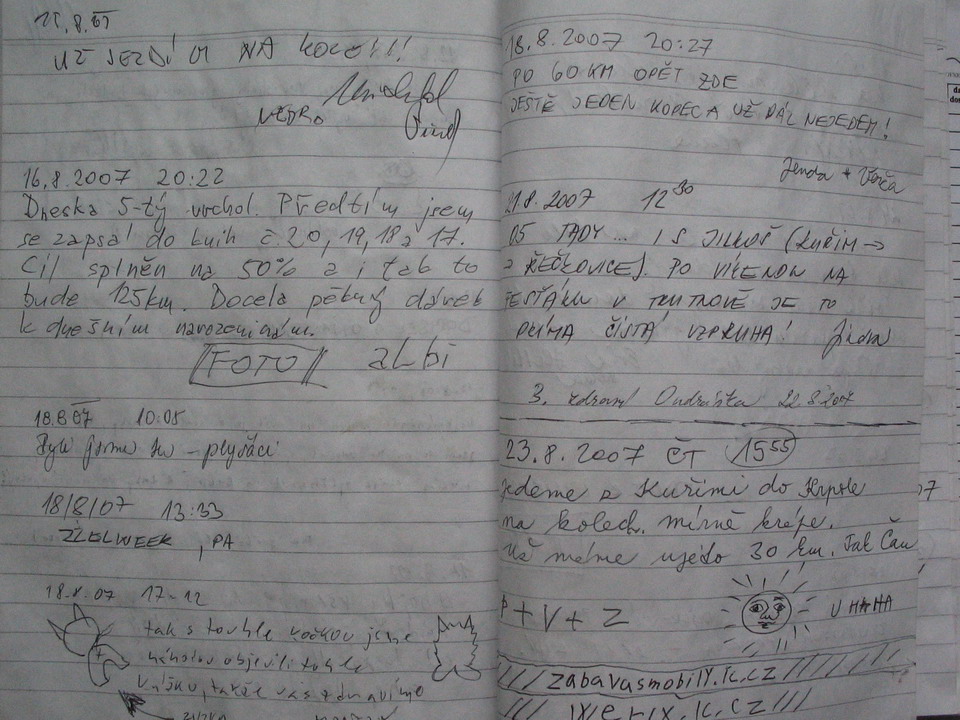 15.8.07
UŽ JEZDÍM NA KOLO!!!
16.8.2007 20:22
Dneska 5-tý vrchol. Předtím jsem
se zapsal do knih č.20, 19, 18 a 17.
Cíl splněn na 50% a i tak to
bude 125km. Docela pěkný dárek
k dnešním narozeninám.
FOTO albi
18.8.07 10:05
Byli jsme tu –
18/8/07 13:33
, PA
18.8.07 17-12
tak s touhle kočkou jsme
náhodou objevili tohle
takže vás zdravíme
18.8.2007 20:27
PO 60 KM OPĚT ZDE
JEŠTĚ JEDEN KOPEC A UŽ DÁL NEJEDEM!
Jenda + Verča
21.8.2007 12 30
TADY... I S (KUŘIM →
ŘEČKOVICE). PO VÍKENDU NA
V TRUTNOVĚ JE TO
PRIMA ČISTÁ VZPRUHA! Jirka
3. zdraví Ondráška 22.8.2007
23.8.2007 ČT 15 55
Jedeme z Kuřimi do
na kolech. mírně krápe.
Už máme ujeto 30 km. Tak Čau
P + V + Z
U HAHA
zabavasmobily.ic.cz
.ic.cz